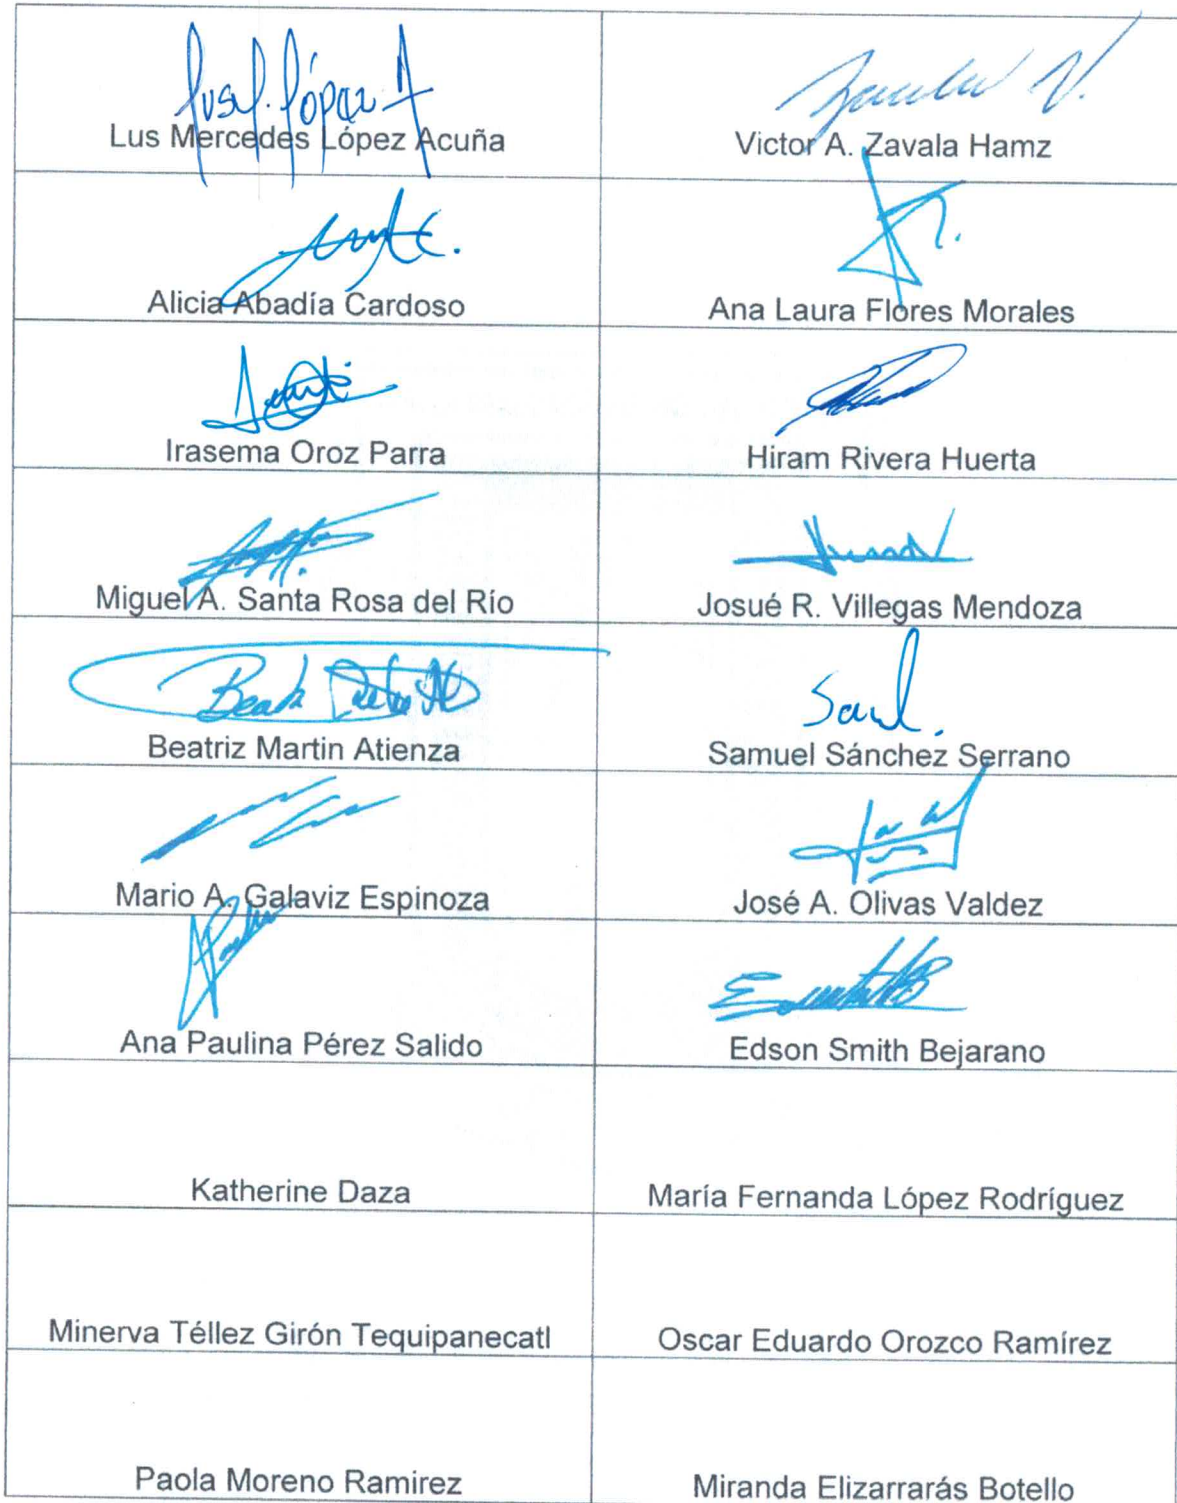 Lusm. López A
Lus Mercedes López Acuña
Zavala V.
Victor A. Zavala Hamz
Alicia Abadía Cardoso
Ana Laura Flores Morales
Irasema Oroz Parra
Hiram Rivera Huerta
Miguel A. Santa Rosa del Río
Josué R. Villegas Mendoza
Beatriz Martin Atienza
Samuel Sánchez Serrano
Mario A. Galaviz Espinoza
José A. Olivas Valdez
Ana Paulina Pérez Salido
Edson Smith Bejarano
Katherine Daza
María Fernanda López Rodríguez
Minerva Téllez Girón Tequipanecatl
Oscar Eduardo Orozco Ramírez
Paola Moreno Ramirez
Miranda Elizarrarás Botello